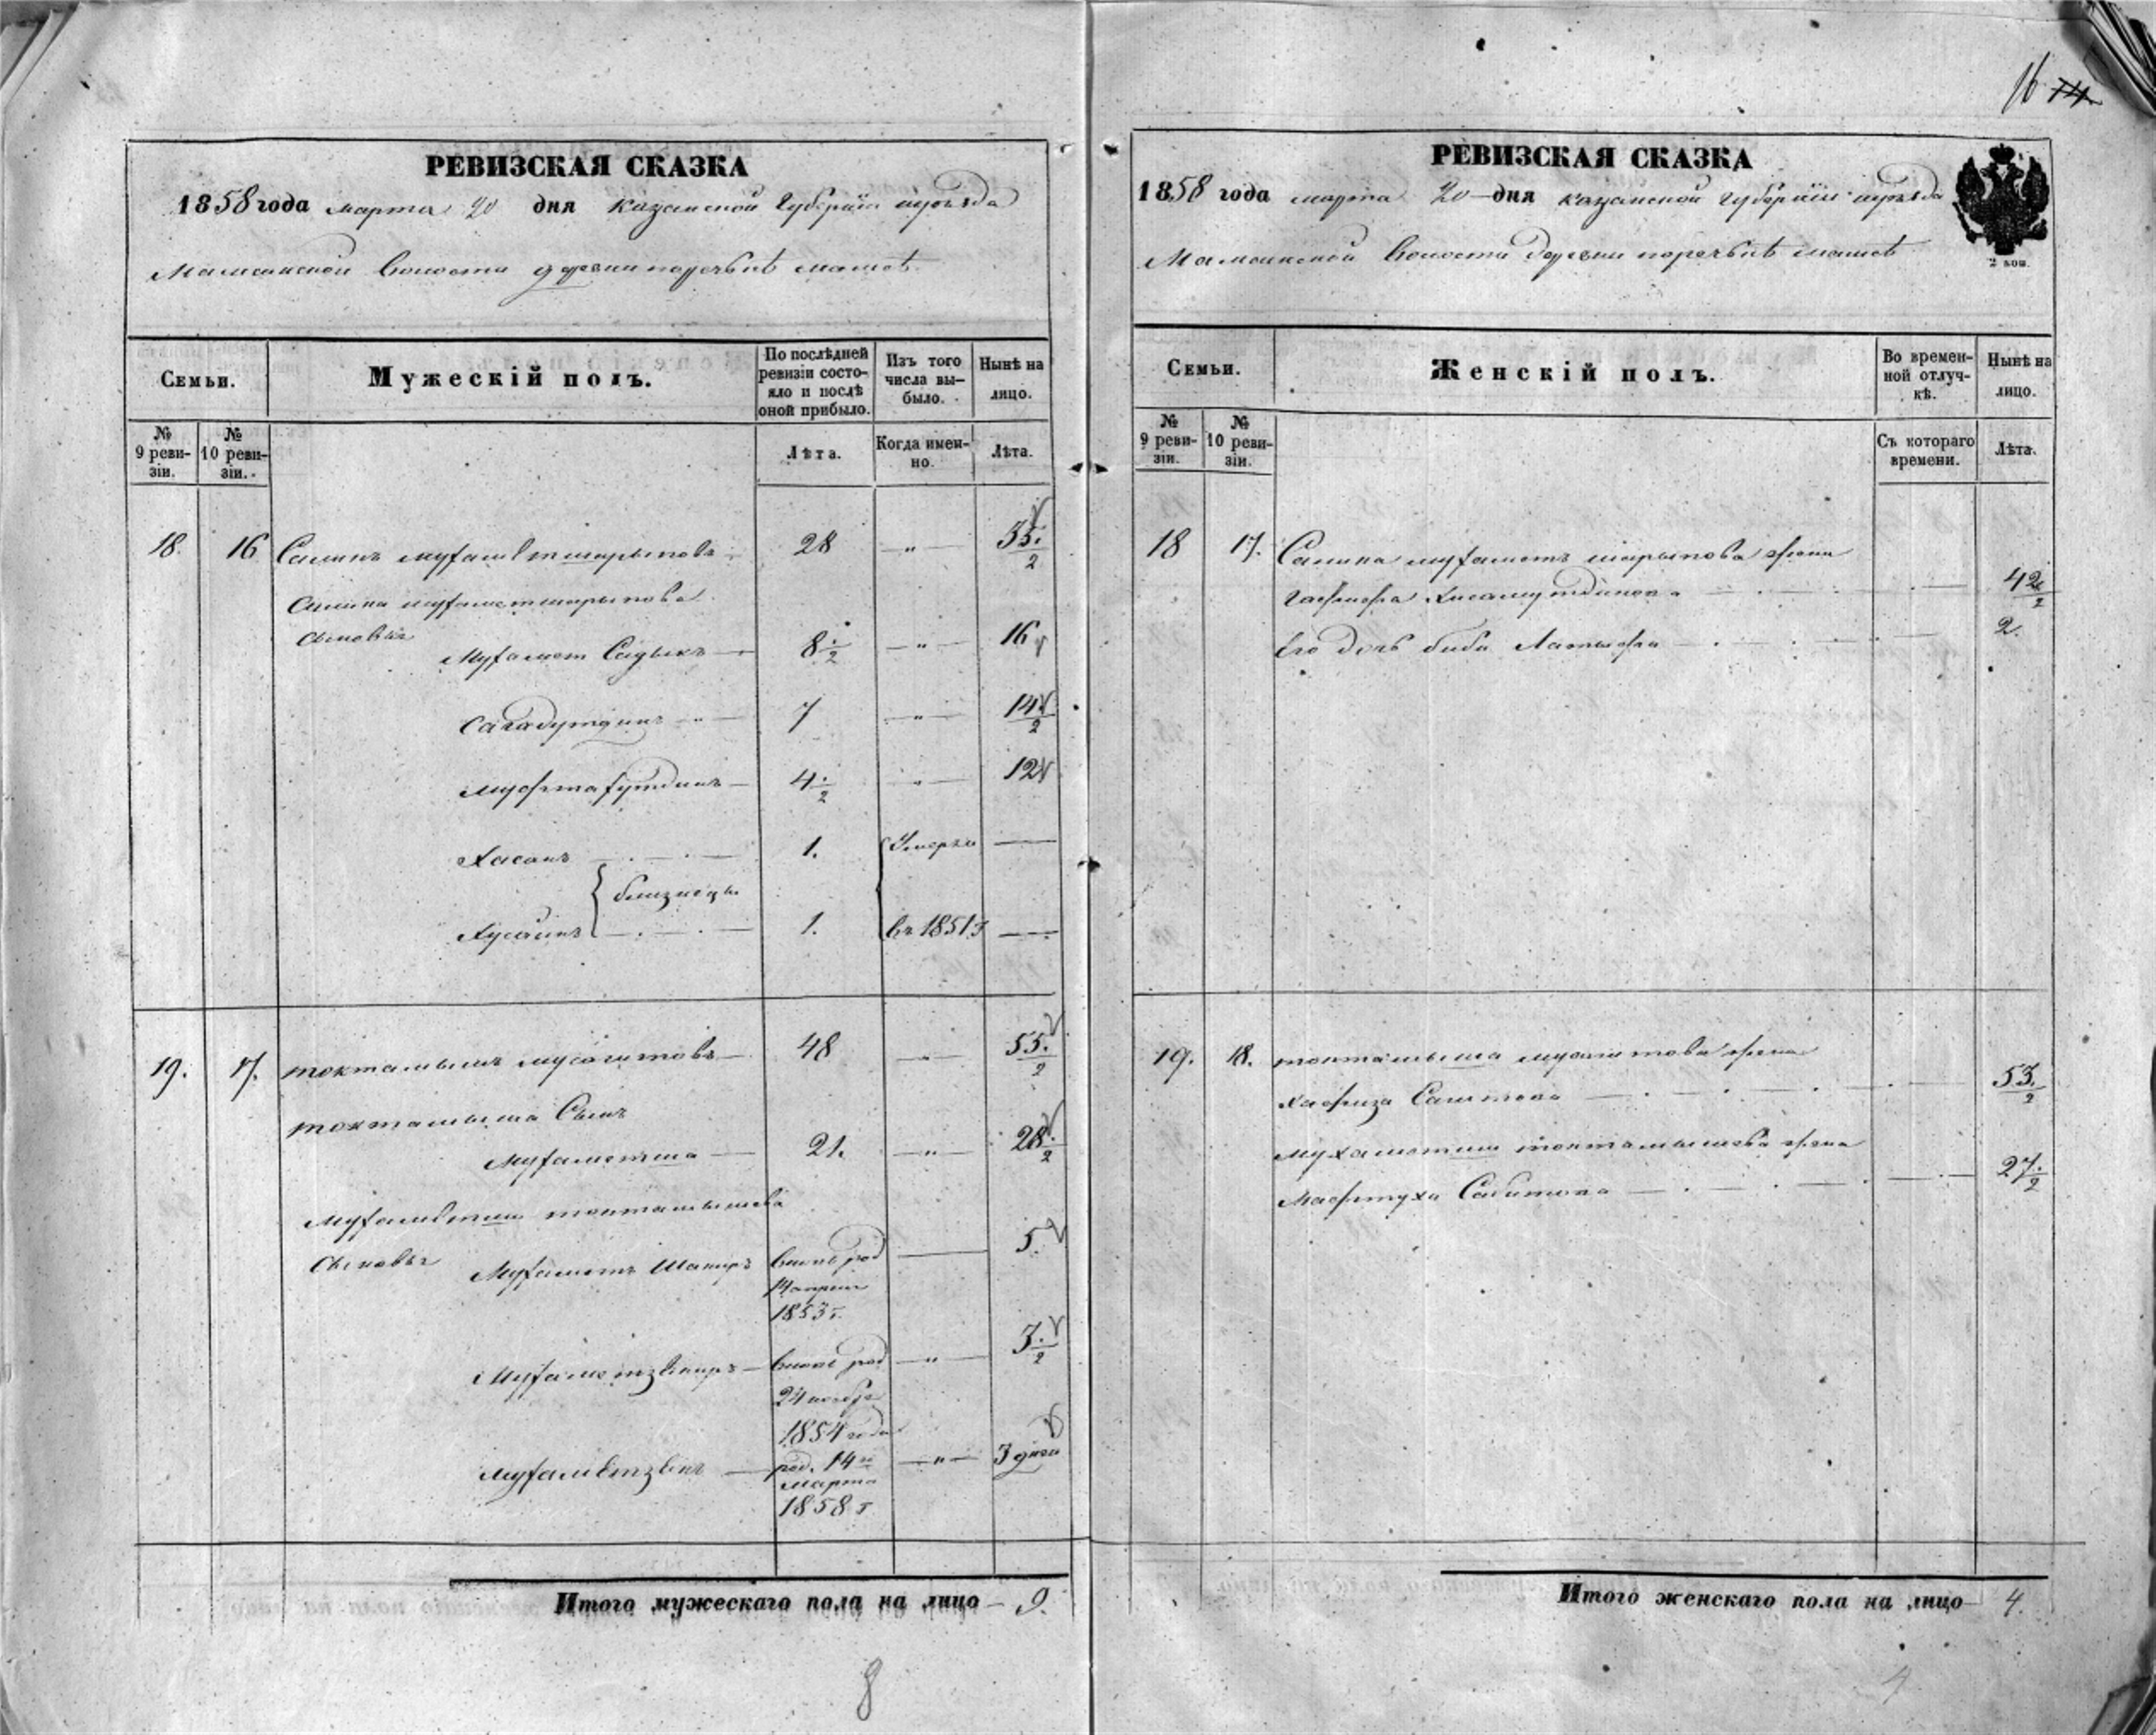 16 14
РЕВИЗСКАЯ СКАЗКА
1858 года марта 20 дня Казанской Губернiи уѣзда
Мамсинской волости деревни
Семьи.
Мужескiй полъ.
По послѣдней ревизiи состояло и послѣ оной прибыло.
Изъ того числа выбыло.
Нынѣ на лицо.
№ 9 ревизiи.
№ 10 ревизiи.
Лѣта.
Когда именно.
Лѣта.
18. 16 Салихъ Мухаметшарыповъ 28 — „ — 35. 1/2
Салиха Мухаметшарыпова
сыновья
Мухамет Садыкъ 8 1/2 — „ — 16
Сагадутдинъ 7 — „ — 14 1/2
Мифтахутдинъ 4 1/2 „ 12
Хасанъ 1. Умерли —
близнецы
Хусаинъ 1. въ 1851 г —
19. 17. Токтамышъ Мусагитовъ 48 — „ — 55. 1/2
Токтамыша Сынъ
Мухаметша 21. — „ — 28. 1/2
Мухаметши Токтамышева
Сыновья Мухаметъ Шакиръ вновь род 5.
14 апреля
1853 г.
Мухаметзакиръ вновь род — „ — 3. 1/2
24 ноября
1854 года
Мухаметзянъ род. 14го — „ — 3 дней
марта
1858 г
Итого мужескаго пола на лицо — 9.
8
РЕВИЗСКАЯ СКАЗКА
1858 года марта 20 дня Казанской Губернiи уѣзда
Мамсинской волости деревни
2 коп.
Семьи.
Женскiй полъ.
Во временной отлучкѣ.
Нынѣ на лицо.
№ 9 ревизiи.
№ 10 ревизiи.
Съ котораго времени.
Лѣта.
18 17. Салиха Мухаметъ шарыпова жена
Хисамутдинова 42 1/2
Его дочь биби Латыфа 2.
19. 18. Токтамыша Мусагитова жена
Хафиза Сагитова 53. 1/2
Мухаметши Токтамышева жена
Мафтуха Сабитова 27. 1/2
Итого женскаго пола на лицо 4.
4